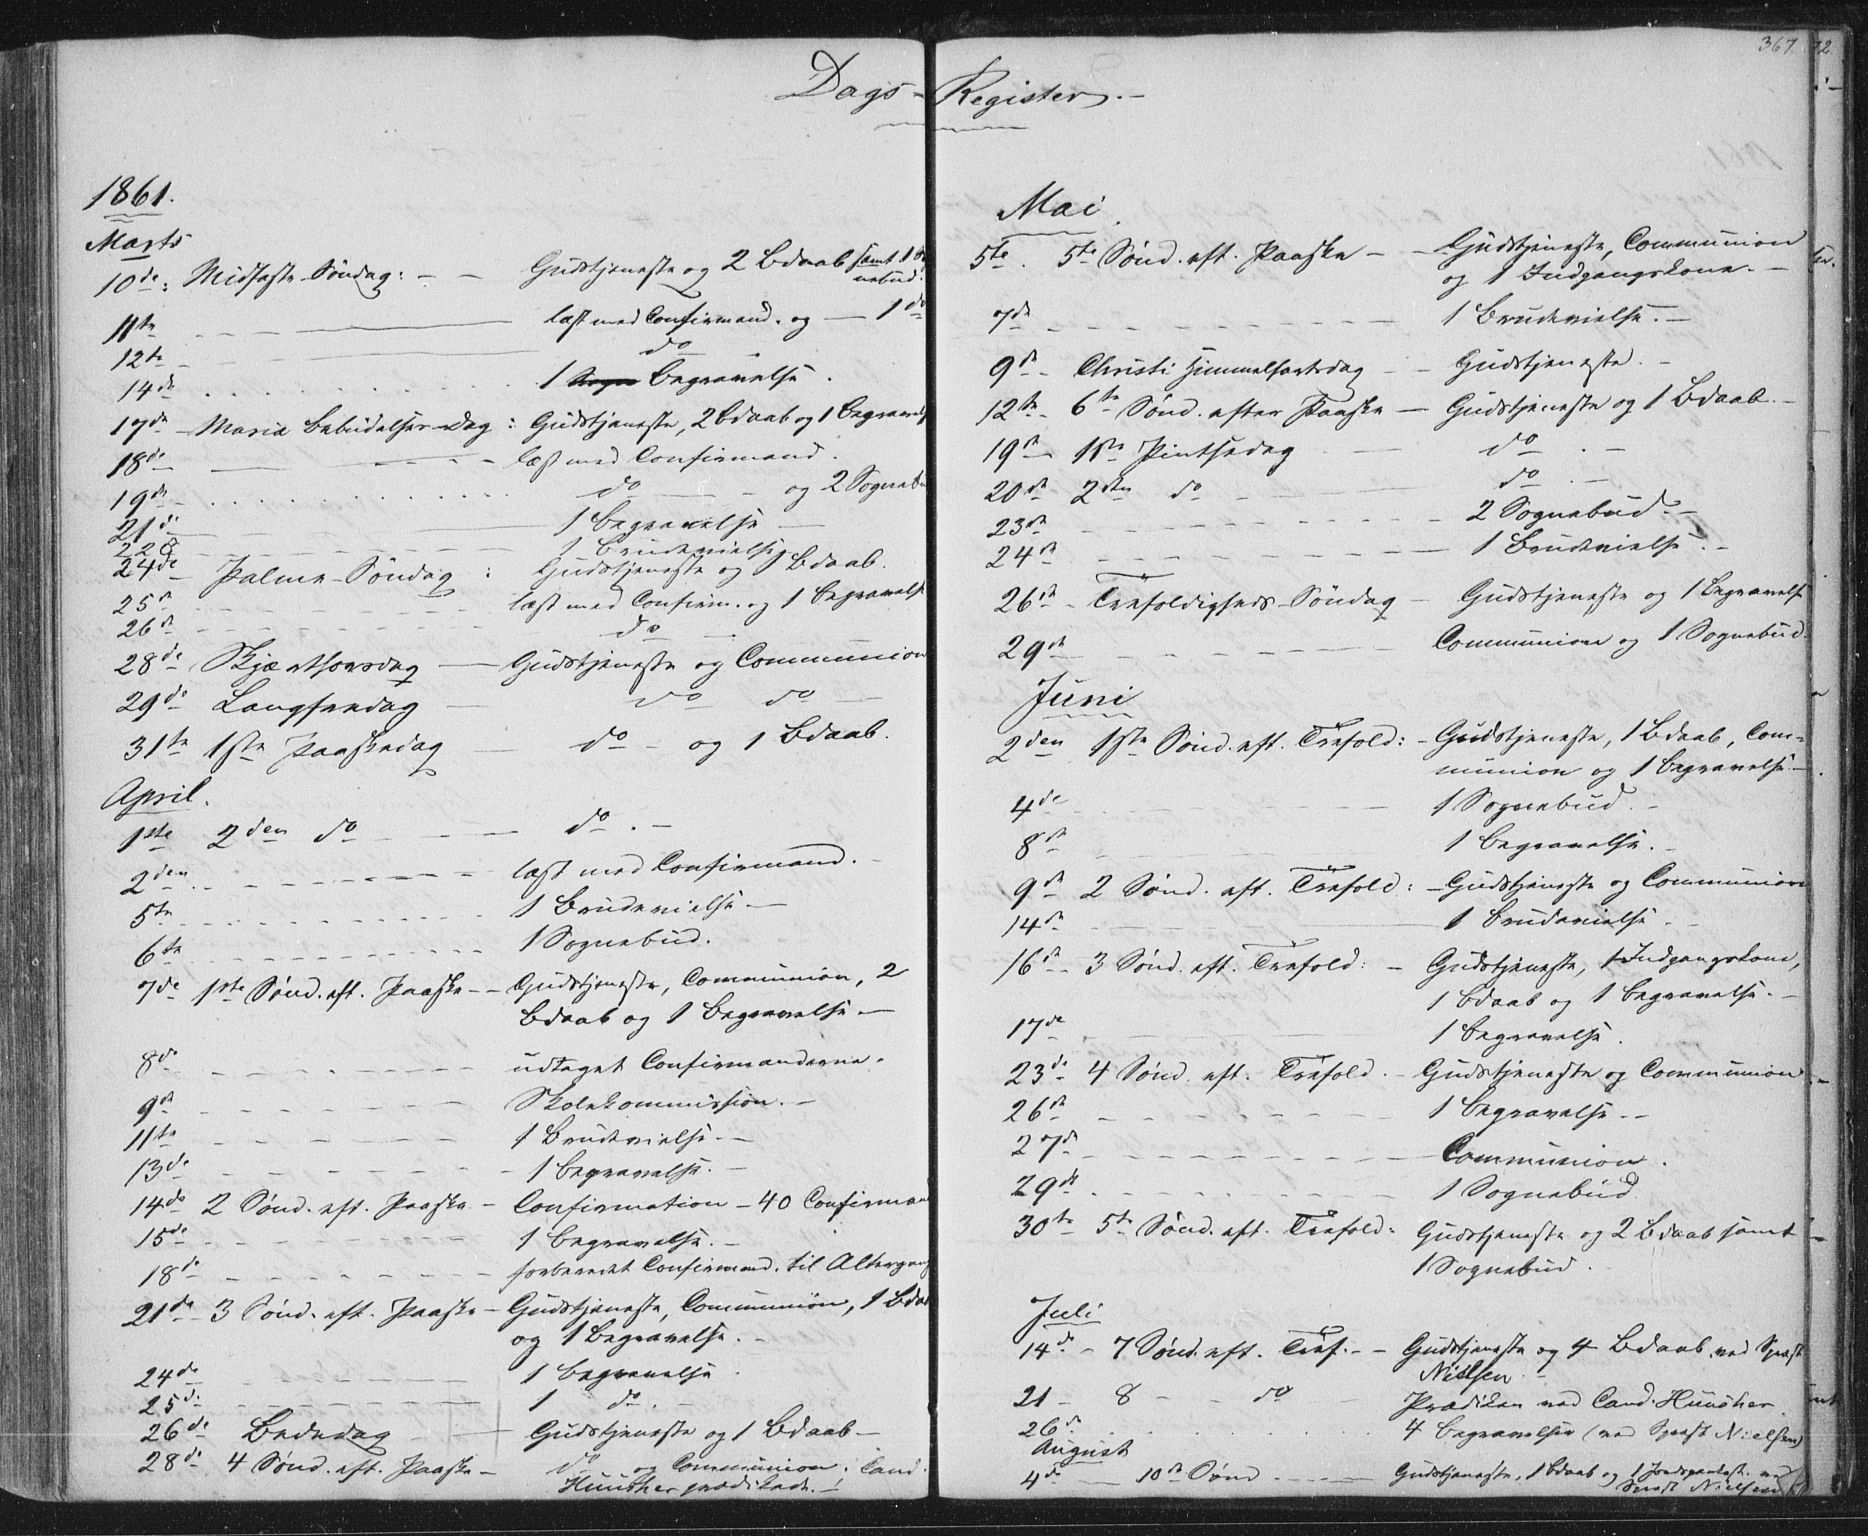 Dags-Register.
367.
1861.
Marts
10de: Midfaste-Søndag: Gudstjeneste og 2 Bdaab samt 1 Sog
nebud.
11te læst med Confirmand. og 1 do
12te do
14de 1 Begravelse.
17de Mariæ Bebudelses-Dag: Gudstjeneste, 2 Bdaab og 1 Begravels
18de læst med Confirmand.
19de do og 2 Sognebu
21de 1 Begravelse
22de 1 Brudevielse
24de Palme-Søndag: Gudstjeneste og 1 Bdaab.
25de læst med Confirm. og 1 Begravelse
26de do
28de Skjærthorsdag Gudstjeneste og Communion
29de Langfredag do do
31te 1ste Paaskedag do og 1 Bdaab.
April.
1ste 2den do do.
2den læst med Confirmand.
5te 1 Brudevielse
6te 1 Sognebud.
7de 1ste Sønd. eft. Paaske Gudstjeneste, Communion, 2
Bdaab og 1 Begravelse
8de udtaget Confirmanderne.
9de Skolekommission.
11te 1 Brudevielse.
13de 1 Begravelse.
14de 2 Sønd. eft. Paaske Confirmation - 40 Confirman
15de 1 Begravelse.
18de forberedt Confirmand. til Altergang
21de 3 Sønd. eft. Paaske Gudstjeneste, Communion, 1 Bdaa
og 1 Begravelse.
24de 1 Begravelse
25de 1 do.
26de Bededag Gudstjeneste og 1 Bdaab
28de 4 Sønd. eft. Paaske do og Communion; Cand.
Huusher prædikede.
Mai
5te. 5te Sønd. eft. Paaske Gudstjeneste, Communion
og 1 Indgangskone.
7de 1 Brudevielse.
9de Christi Himmelfartsdag Gudstjeneste.
12te 6te Sønd. efter Paaske Gudstjeneste og 1 Bdaab.
19de 1ste Pintsedag do.
20de 2den do do.
23de 2 Sognebud.
24de 1 Brudevielse.
26de Trefoldigheds-Søndag Gudstjeneste og 1 Begravelse
29de Communion og 1 Sognebud.
Juni
2den 1ste Sønd. eft. Trefold: Gudstjeneste, 1 Bdaab, Com=
munion og 1 Begravelse.
4de 1 Sognebud.
8de 1 Begravelse.
9de 2 Sønd. eft. Trefold: Gudstjeneste og Communion
14de 1 Brudevielse.
16de 3 Sønd. eft. Trefold: Gudstjeneste, 1 Indgangskone,
1 Bdaab og 1 Begravelse.
17de 1 Begravelse.
23de 4 Sønd. eft. Trefold. Gudstjeneste og Communion
26de 1 Begravelse.
27de Communion.
29de 1 Sognebud
30te 5te Sønd. eft. Trefold: Gudstjeneste og 2 Bdaab samt
1 Sognebud.
Juli
14de 7 Sønd. eft. Tref. Gudstjeneste og 4 Bdaab ved
Nielsen.
21 8 do Prædiken ved Cand. Huusher.
26de 4 Begravelser (ved Nielsen)
August
4de 10de Sønd Gudstjeneste, 1 Bdaab og 1 ved
Nielsen